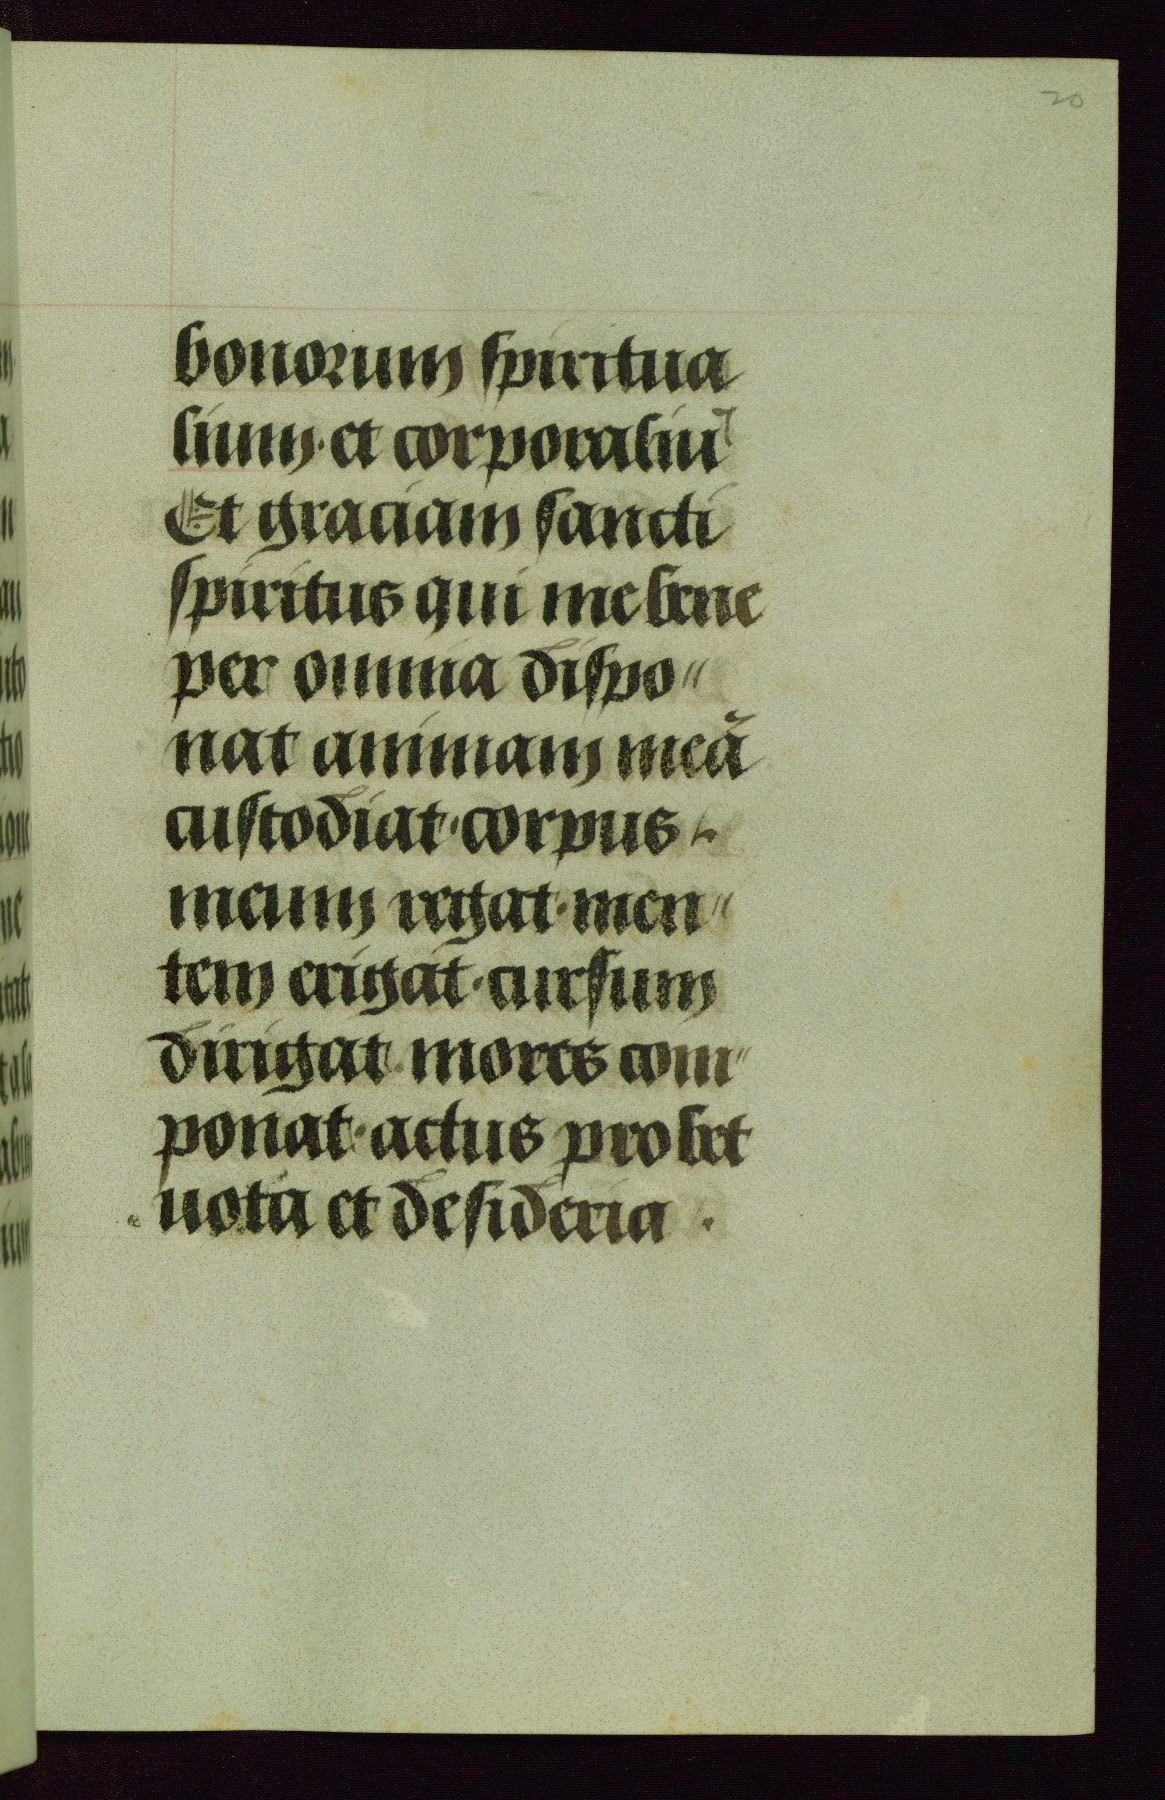 20
bonorum spiritua
lium · et corporaliũ
Et graciam sancti
spiritus qui me bene
per omnia dispo"
nat animam meã
custodiat · corpus
meum regat · men"
tem erigat · cursum
dirigat · mores com"
ponat · actus probet
uota et desideria ·